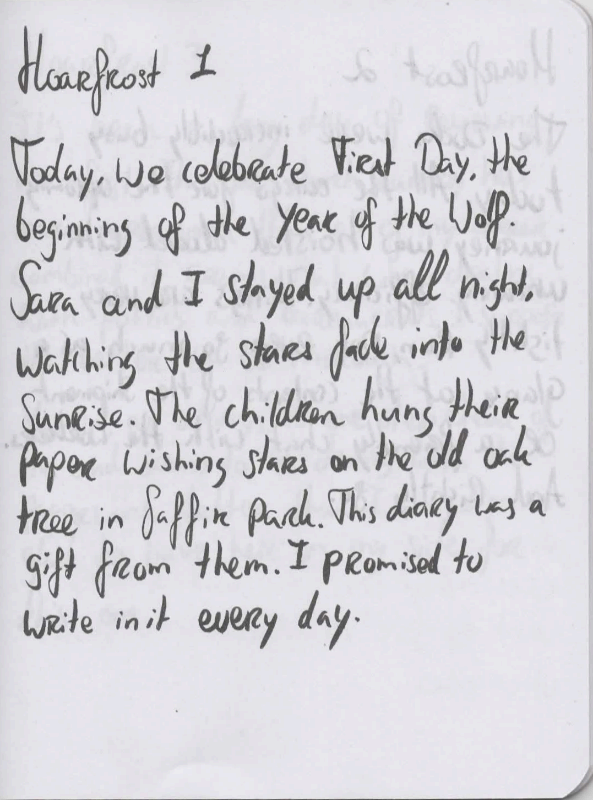 Hoarfrost 1
Today, we celebrate First Day, the
beginning of the Year of the Wolf.
Sara and I stayed up all night,
watching the stars fade into the
sunrise. The children hung their
paper wishing stars on the old oak
tree in Saffir Park. This diary was a
gift from them. I promised to
write in it every day.